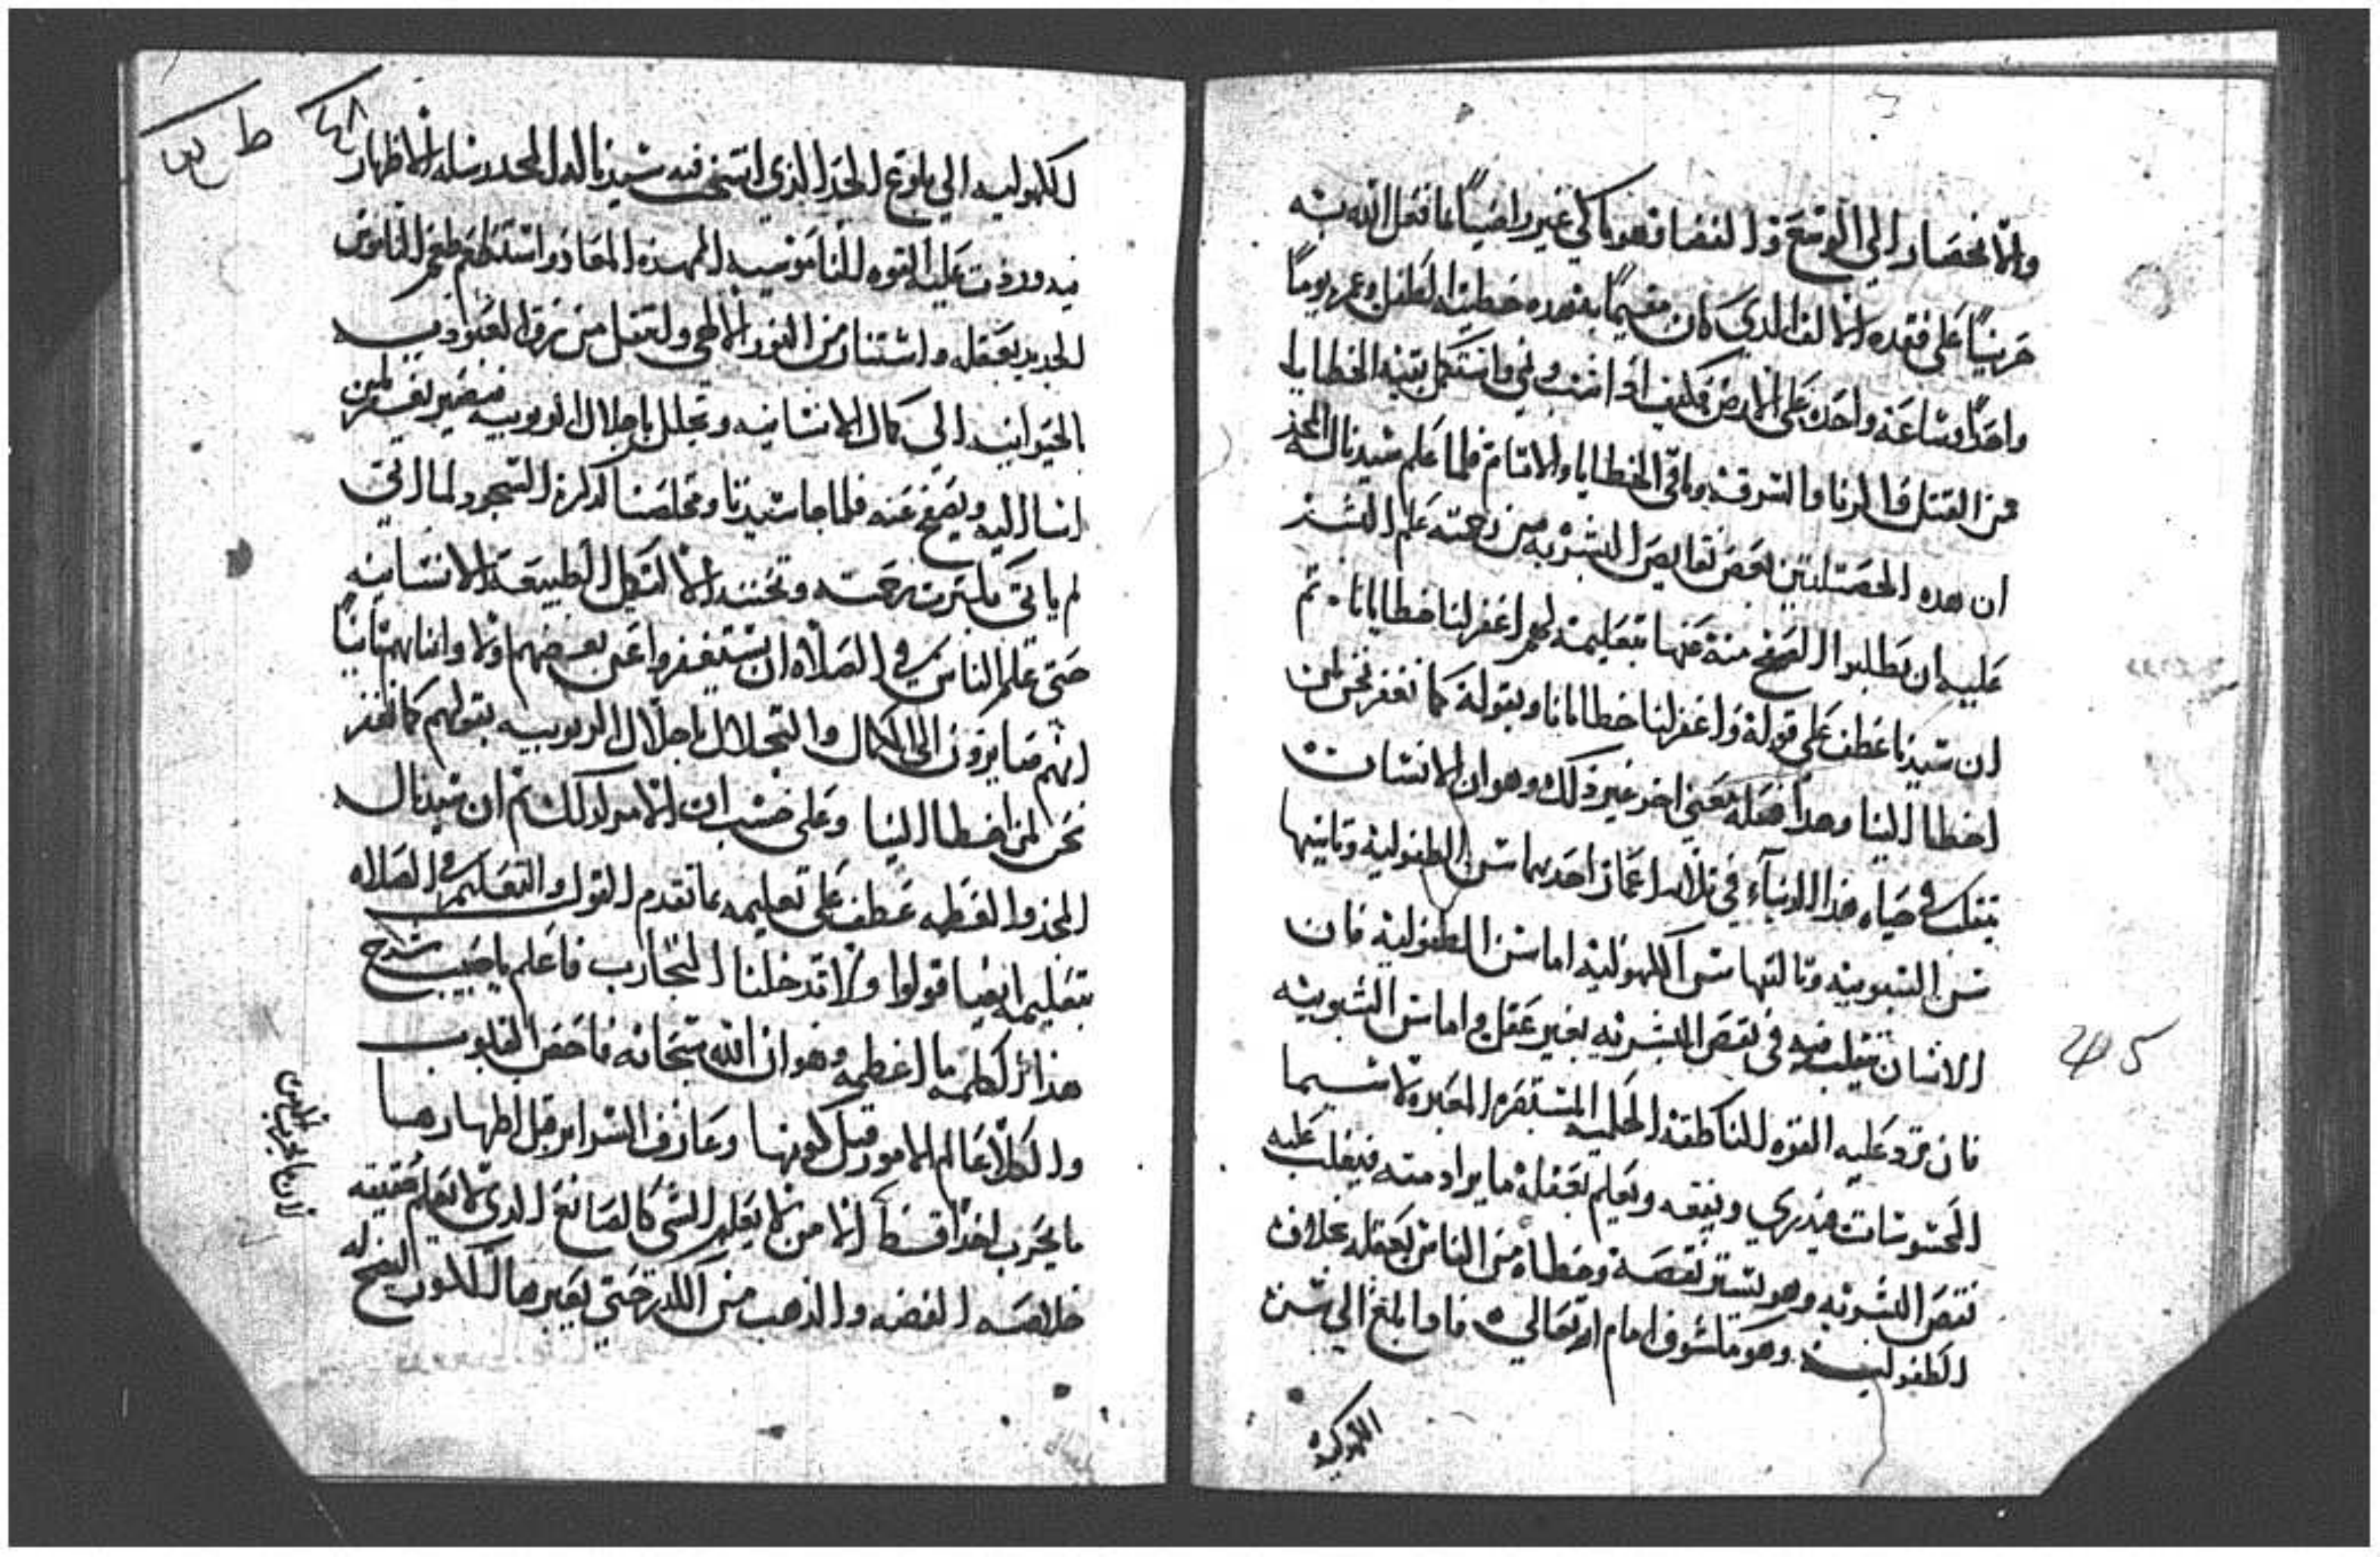 والانحصار الي الوسع والفضا فهو باكي غير راضياً بما فعل الله به
حزيناً على فقده الالف الذي كان مقيماً به وهده خطية الطفل وعمره يوماً
واحداً وساعة واحده على الارض فكيف اذا انتشو ونمي واستكمل بقية الخطايا
من القتل والزنا والسرقه وباقي الخطايا والاثام فلما علم سيدنا له المجد
ان هده الخصلتين بعض نقايص البشريه من رحمته علم البشر
عليه ان يطلبوا الصفح منه عنها بتعليمه لهم اغفر لنا خطايانا . ثم
ان سيدنا عطف على قوله واغفر لنا خطايانا وبقوله كما نغفر نحن لمن
اخطا الينا وهدا فعله بمعني اخر غير ذلك وهو ان الانسان
في حياه هذا الدنياء في ثلاثه اعمار احدهما سن الطفوليه وثانيها
سن الشبوبيه وثالثها سن الكهوليه اما سن الطفوليه فان
الانسان يتقلب فيه في نقص البشريه بغير عقل واما سن الشبوبيه
فان ترد عليه القوه الناطقه الحلميه المستقره المخبره لا سيما
المحسوسات فيدري ويفقه ويعلم بعقله ما يراد منه فيغلب عليه
نقص البشريه وهو يستر نقصه وخطاه من الناس بعقله بخلاف
الطفوليه وهو مكشوف امام الله تعالي فاذا بلغ الي سن
الكهوليه
245
٤٨
ط
للكهوليه الي بلوغ الحد الذي اتسخ فيه سيدنا له المجد رساله الاظهار
فيه وردت عليه القوه الناموسيه المهده المعاد واستطاع طعم الناموس
الجديد بعقله واستنار من النور الالهي وانتقل من رق العبوديه
بالحيوانيه الي كمال الانسانيه وتجلل باجلال الربوبيه فيصير يغفر لمن
اسا اليه ويصفح عنه فلما جا سيدنا ومخلصنا لذكره السجود لما اتي
لم ياتي بكثرت رحمته وتحننه الا لتكمل الطبيعه الانسانيه
حتي علم الناس في الصلاه ان يستغفروا عن بعضهم اولا وانابهم ثانياً
انهم صايرون الي الكمال والتجلال باجلال الربوبيه بقولهم كما نغفر
نحن لمن اخطا الينا وعلى حسب ان الامر كدلك ثم ان سيدنا له
المجد والعظمه عطف على تعليمه بما تقدم القول والتعليم في الصلاه
بتعليم ايضا قولوا ولا تدخلنا التجارب فاعلم يا حبيب شرح
هذا الكلمه ما اعظمه وهو ان الله سبحانه فاحص القلوب
والكلا عالم الامور قبل كونها وعارف السراير قبل اظهارها
ما يجرب احداً قط الا من لا يعلم الشي كالصانع الدي لا يعلم حقيقه
خلاصه الفضه والذهب من الكدر حتي يعبرها الكور الفحم